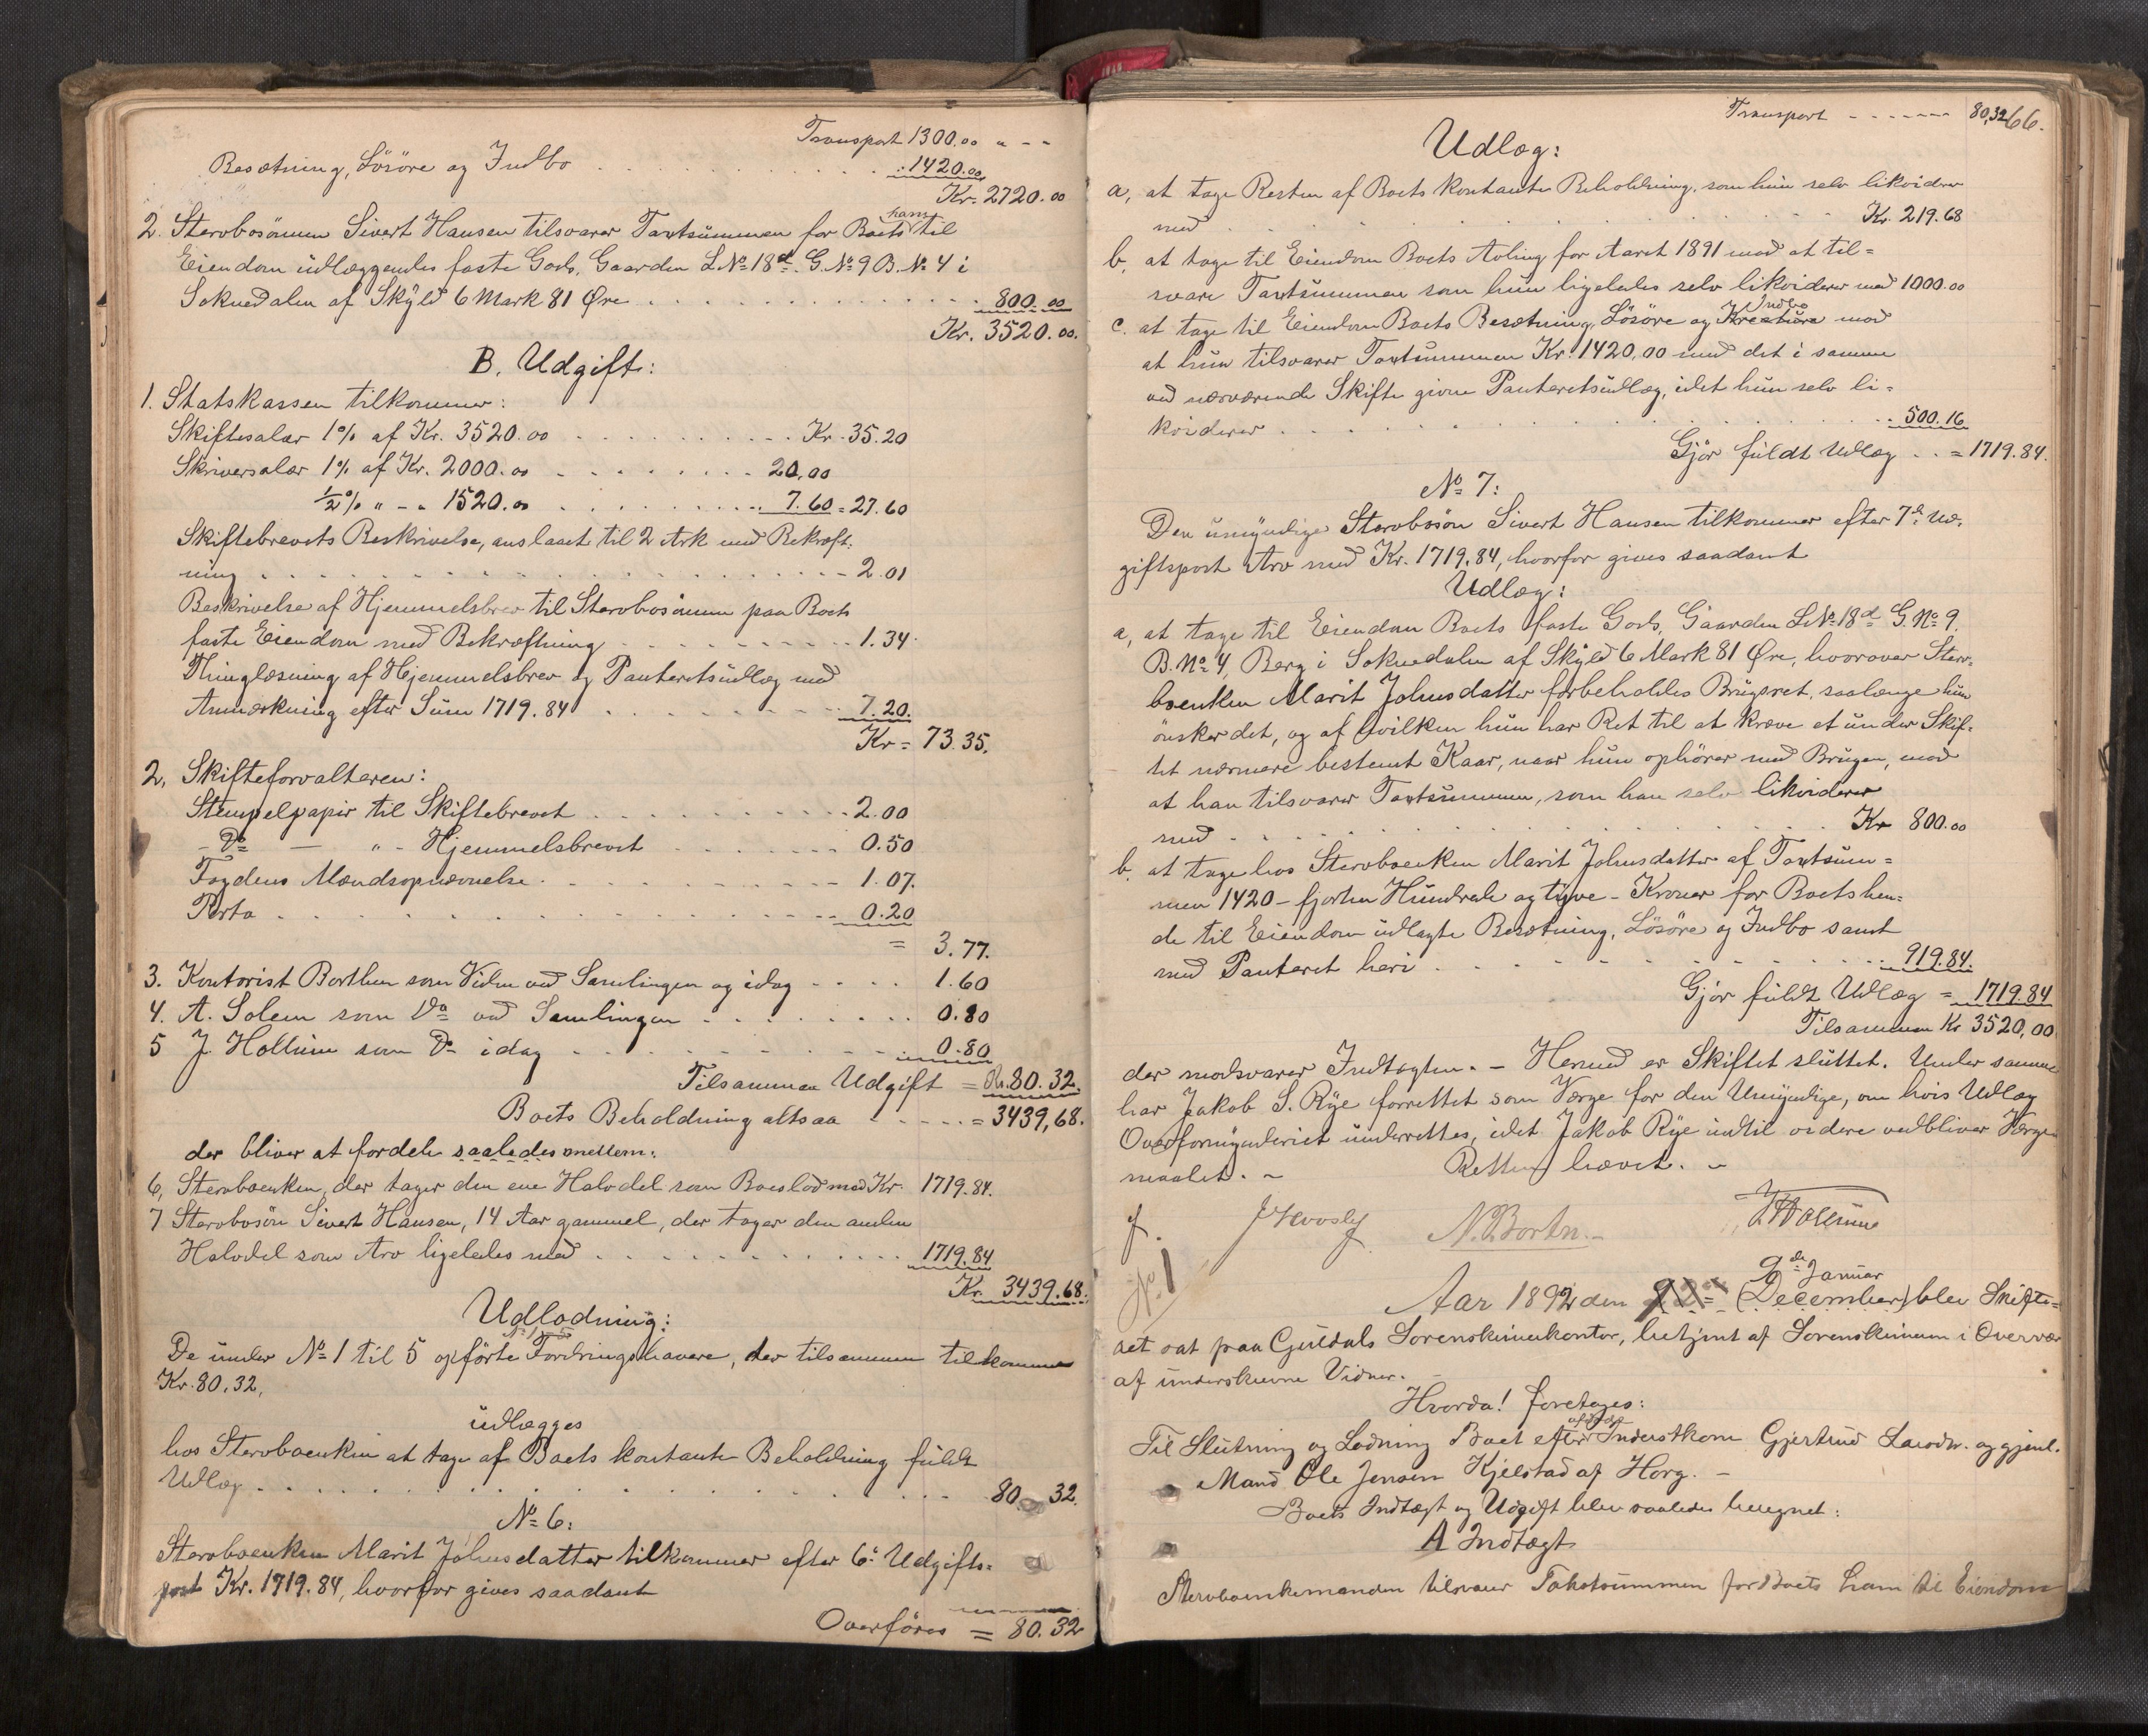 Transport 1300.00 " - -
Besætning, Lösöre og Indbo . . . 1420.00
Kr. 2720.00
2. Stervbosönnen Sivert Hansen tilsvarer Taxtsummen for Boets ham til
Eiendom udlæggendes faste Gods, Gaarden L.No 18d G.No 9 B.No 4 i
Soknedalen af Skyld 6 Mark 81 Øre . . . 800.00
Kr. 3520.00.
B. Udgift:
1. Statskassen tilkommer:
Skiftesalær 1% af Kr. 3520.00 . . . Kr. 35.20
Skriversalær 1% af Kr. 2000.00 . . . 20.00
½% " - " 1520.00 . . . 7.60 = 27.60
Skiftebrevets Beskrivelse, anslaaet til 2 Ark med Bekræft-
ning . . . 2.01
Beskrivelse af Hjemmelsbrev til Stervbosönnen paa Boets
faste Eiendom med Bekræftning . . . 1.34.
Thinglæsning af Hjemmelsbrev og Panteretsudlæg med
Anmærkning efter Sum 1719.84 . . . 7.20.
Kr = 73.35.
2, Skifteforvalteren:
Stempelpapir til Skiftebrevet . . . 2.00
- Do - " - Hjemmelsbrevet . . . 0.50
Fogdens Mændsopnævnelse . . . 1.07.
Porto . . . 0.20
= 3.77.
3. Kontorist Borthen som Vidne ved Samlingen og idag . . . 1.60
4. A. Solem som Do ved Samlingen . . . 0.80
5 J. Hollum som Do idag . . . 0.80
Tilsammen Udgift = Kr. 80.32.
Boets Beholdning altsaa . . . = 3439,68.
der bliver at fordele saaledes mellem:
6, Stervboenken, der tager den ene Halvdel som Boeslod med Kr. 1719.84.
7 Stervbosön Sivert Hansen, 14 Aar gammel, der tager den anden
Halvdel som Arv ligeledes med . . . 1719.84
Kr. 3439.68.
Udlodning:
No 1 - 5
De under No 1 til 5 opförte Fordringshavere, der tilsammen tilkommer
Kr. 80.32,
udlægges
hos Stervboenken at tage af Boets kontante Beholdning fuldt
Udlæg . . . 80. 32.
No 6:
Stervboenken Marit Johnsdatter tilkommer efter 6te Udgifts-
post Kr. 1719.84, hvorfor gives saadant
Overföres = 80.32
Transport - - - 80,32 66.
Udlæg:
a, at tage Resten af Boets kontante Beholdning, som hun selv likviderer
med . . . Kr. 219.68
b, at tage til Eiendom Boets Avling for Aaret 1891 mod at til-
svare Taxtsummen som hun ligeledes selv likviderer med 1000.00
c. at tage til Eiendom Boets Besætning, Lösöre og Kreature Indbo mod
at hun tilsvarer Taxtsummen Kr. 1420,00 med det i samme
ved nærværende Skifte givne Panteretsudlæg, idet hun selv li-
kviderer . . . 500.16
Gjör fuldt Udlæg . . = 1719.84.
No 7:
Den umyndige Stervbosön Sivert Hansen tilkommer efter 7de Ud-
giftspost Arv med Kr. 1719.84, hvorfor gives saadant
Udlæg:
a, at tage til Eiendom Boets faste Gods, Gaarden L.No 18d G.No 9.
B.No 4, Berg i Soknedalen af Skyld 6 Mark 81 Øre, hvorover Sterv-
boenken Marit Johnsdatter forbeholdes Brugsret, saalænge hun
önsker det, og af hvilken hun har Ret til at kræve et under Skif-
tet nærmere bestemt Kaar, naar hun ophörer med Brugen, mod
at han tilsvarer Taxtsummen, som han selv likviderer
med . . . Kr 800.00
b. at tage hos Stervboenken Marit Johnsdatter af Taxtsum-
men 1420 - fjorten Hundrede og tyve - Kroner for Boets hen-
de til Eiendom udlagte Besætning, Lösöre og Indbo samt
med Panteret heri . . . 919.84.
Gjör fuldt Udlæg = 1719.84
Tilsammen Kr 3520,00
der modsvarer Indtægten. - Hermed er Skiftet sluttet. Under samme
har Jakob S. Rye forrettet som Værge for den Umyndige, om hvis Udlæg
Overformynderiet underrettes, idet Jakob Rye indtil videre vedbliver Værge-
maalet. - Retten hævet. -
J. Hovsly N. Borthn. J Hollum
No 1
9de Januar
Aar 1892 den (December) blev Skifte-
ret sat paa Guldals Sorenskriverkontor, betjent af Sorenskriveren i Overvær
af underskrevne Vidner. -
Hvorda! foretoges:
Til Slutning og Lodning Boet efter afdøde Inderstkone Gjertrud Larsdr. og gjenl.
Mand Ole Jensen Kjelstad af Horg. -
Boets Indtægt og Udgift blev saaledes beregnet:
A Indtægt
Stervboenkemanden tilsvarer Takstsummen for Boets ham til Eiendom